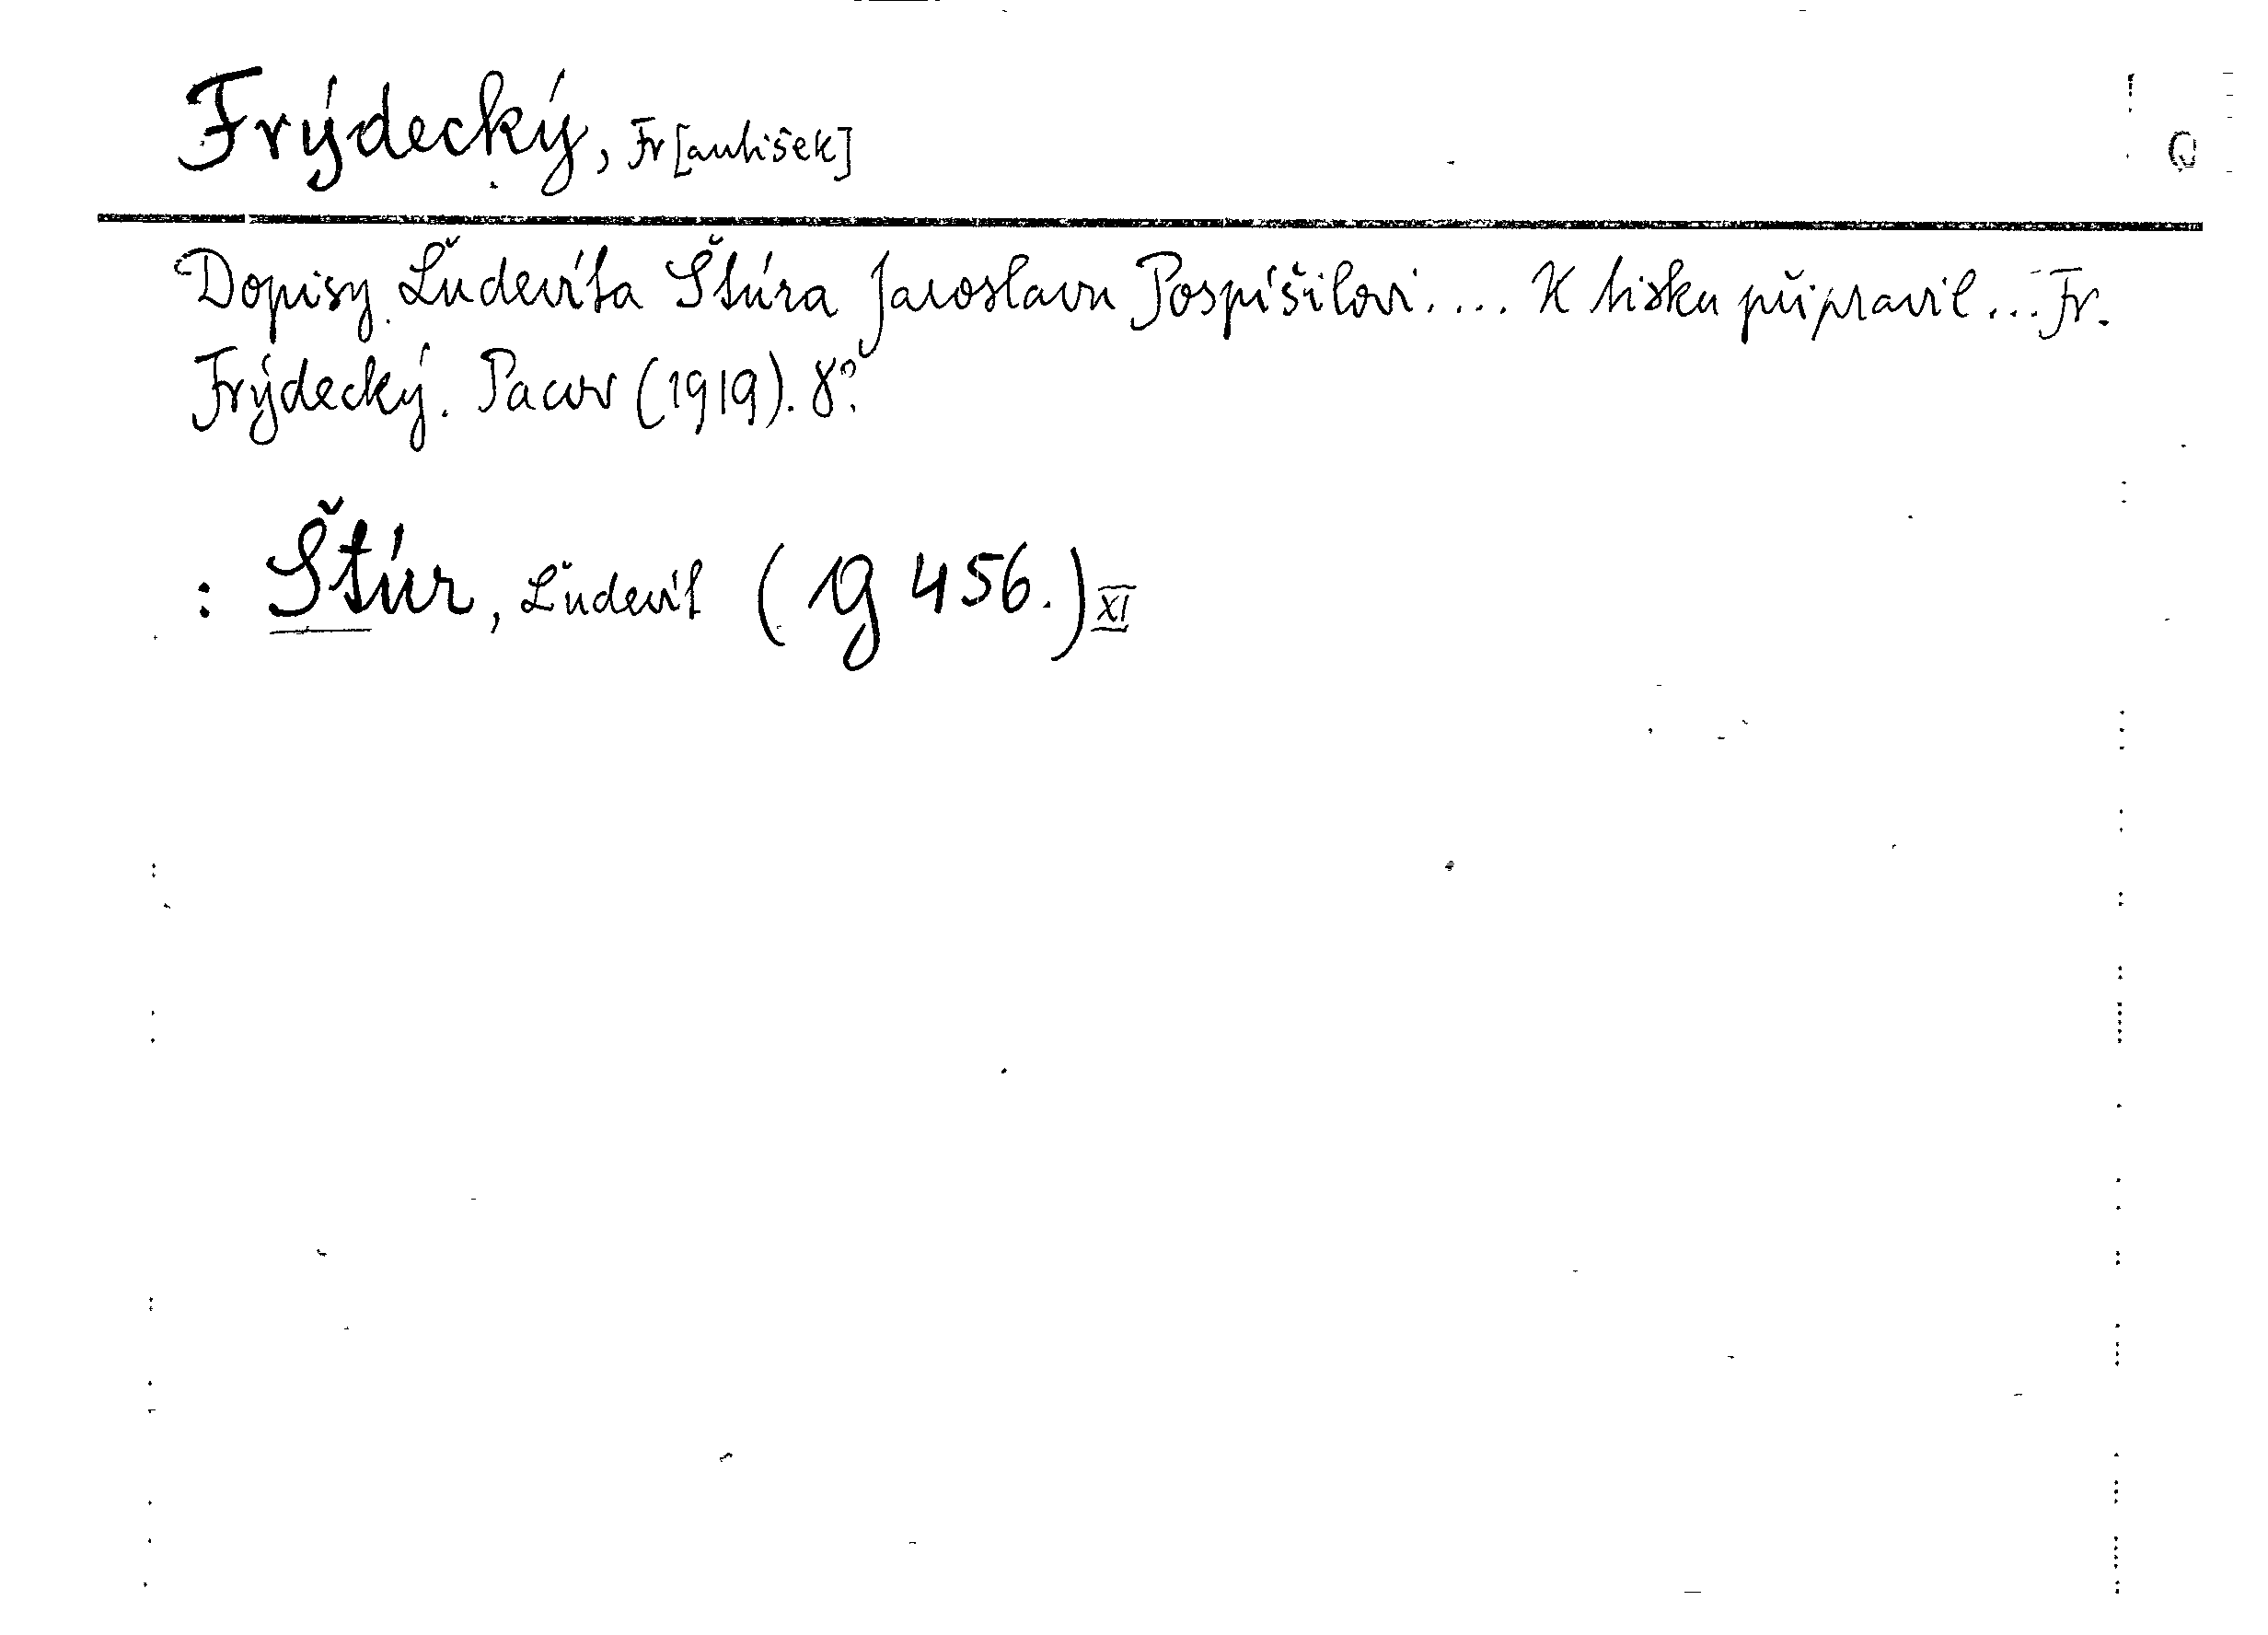 Frýdecký, Fr[antišek]
Dopisy Ľudevíta Štúra Jaroslavu Pospíšilovi.... K tisku připravil... Fr.
Frýdecký. Pacov (1919). 8°.
: Štúr, Ľudevít (19 456.) XI